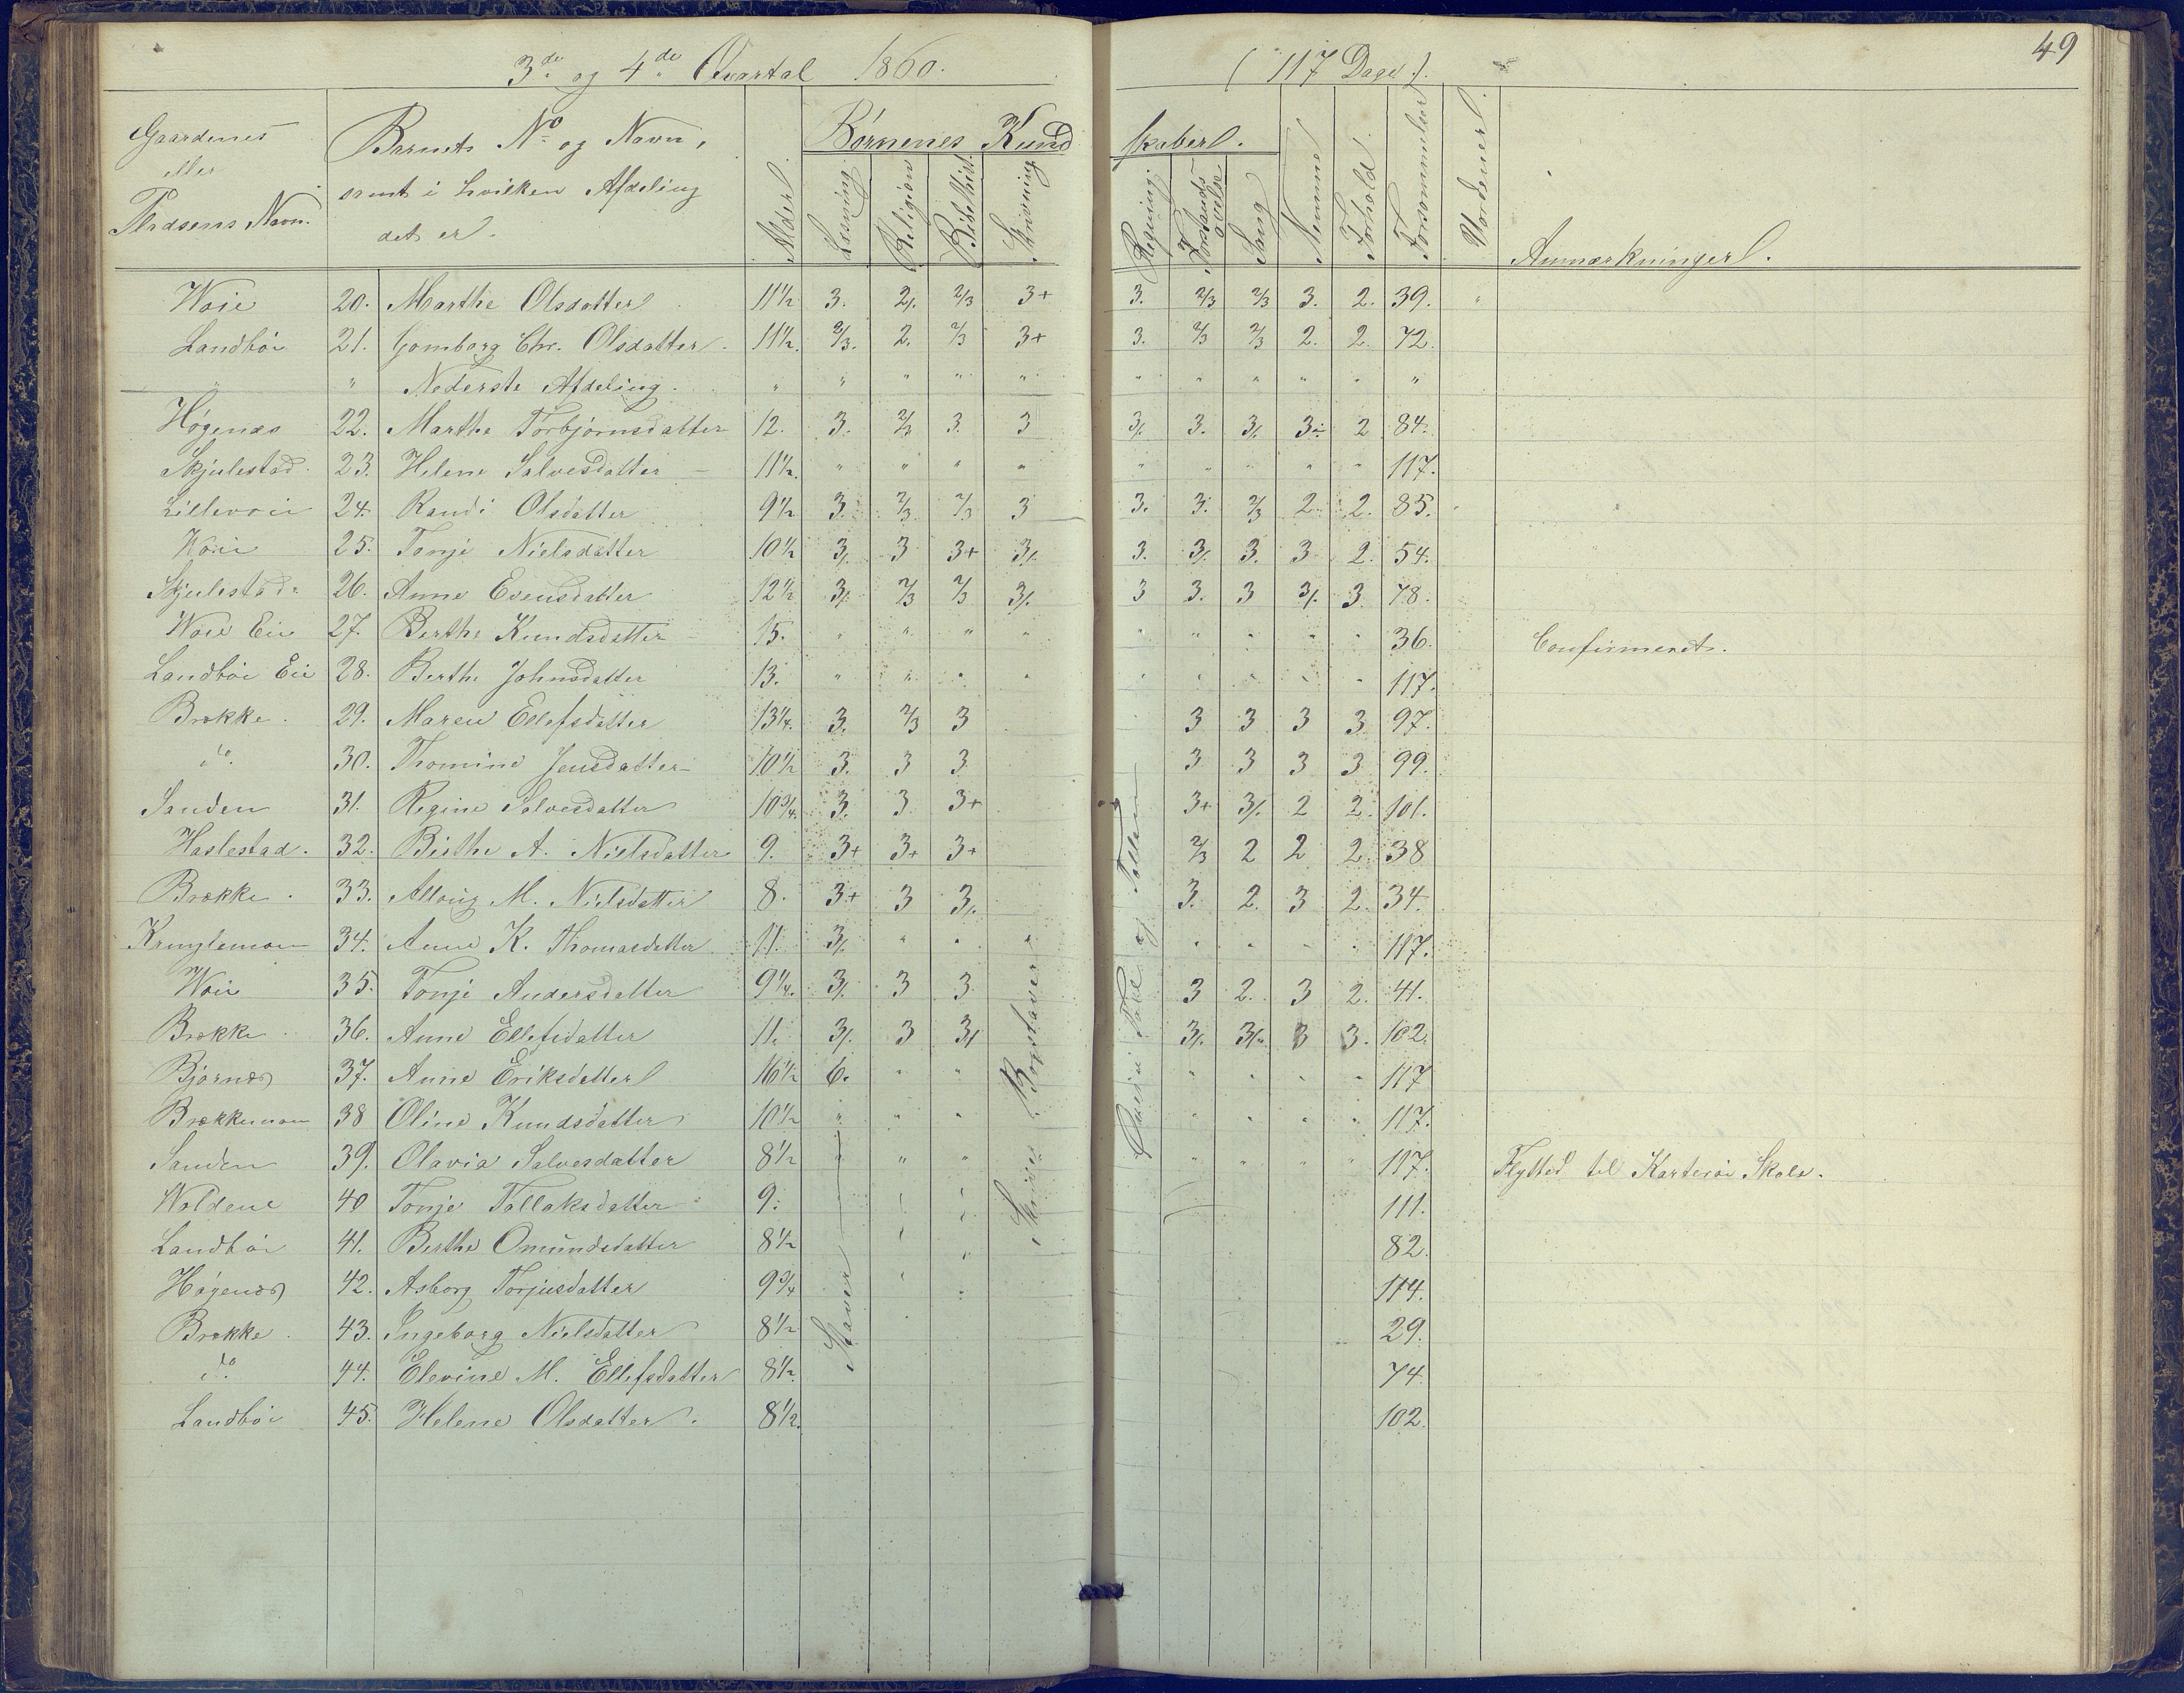 3de og 4de Qvartal 1860. (117 Dage). 49
Gaardenes eller Pladsens Navn. | Barnets No og Navn, samt i hvilken Afdeling det er. | Alder. | Børnenes Kundskaber. | Nemme | Forhold. | Forsømmelser | Vordener | Anmærkninger.
Læsning | Religion | Bibelhist. | Skrivning | Regning. | Forstands-øvelse | Sang
Woie 20. Marthe Olsdatter 11½ 3. 2/. 2/3 3+ 3. 2/3 2/3 3. 2. 39. "
Landbøi 21. Gomborg Chr. Olsdatter. 11½. 2/3. 2. 2/3 3+ 3. 2/3 2/3 2. 2. 72.
" " Nederste Afdeling. " " " " " " " " " " "
Høgenæs 22. Marthe Torbjørnsdatter 12. 3. 2/3 3. 3 3/. 3. 3/. 3÷ 2 84.
Skjulestad. 23. Helene Salvesdatter 11½. " " " " " " " " " 117.
Lillevoie 24. Randi Olsdatter 9½ 3. 2/3. 2/3 3 3. 3. 2/3 2 2. 85.
Woie 25. Tonje Nielsdatter 10½ 3/. 3 3+ 3/. 3. 3/. 3. 3 2. 54.
Skjulestad. 26. Anne Evensdatter 12½ 3/. 2/3 2/3 3/. 3 3. 3 3/. 3. 78.
Woie Eie 27. Berthe Knudsdatter 15. " " " " " " " " " 36. Confirmeret.
Landbøi Eie 28. Berthe Johnsdatter 13. " " " " " " " " " 117.
Brække. 29. Maren Ellefsdatter 13¼. 3. 2/3 3 3 3 3 3 97.
do. 30. Thomine Jensdatter 10½ 3. 3 3 3 3 3 3 99.
Sanden 31. Regine Salvesdatter 10¾. 3. 3 3+ 3+ 3/. 2 2. 101.
Haslestad. 32. Birthe A. Nielsdatter 9. 3+ 3+ 3+ 2/3 2 2 2. 38
Brække. 33. M. Nielsdatter 8. 3+ 3 3/. 3. 2. 3 2. 34.
34. Anne K. Thomasdatter. 11. 3/. " " " " " " " 117.
Woie 35. Tonje Andersdatter 9¼. 3/. 3 3. 3 2. 3 2. 41.
Brække. 36. Anne Ellefsdatter 11. 3/. 3 3/ 3/. 3/. 3 3. 102.
Bjørnæs 37. Anne Eriksdatter 16½ 6. " " " " " " 117
38 Oline Knudsdatter 10½ " " " " " " " 117.
Sanden 39. Olavia Salvesdatter 8½ " " " " " " " 117. Flyttet til Skole.
Woldene 40 Tonje Tollaksdatter 9. 111.
Landbøi 41. Berthe Omundsdatter 8½ 82.
Høgenæs 42. Asborg Torjusdatter 9¾ 114.
Brække. 43. Ingeborg Nielsdatter 8½ 29.
do. 44. Elevine M. Ellefsdatter 8½. 74.
Landbøi 45. Helene Olsdatter. 8½. 102.
Staver
Skriver Bogstaver
Tale og